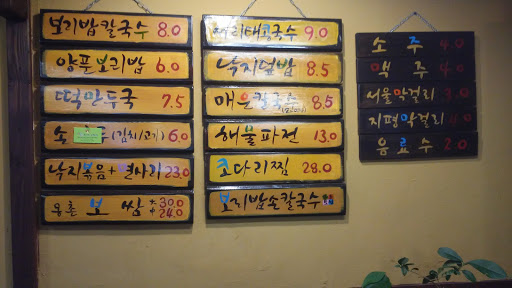 보리밥칼국수 8.0
양푼보리밥 6.0
떡만두국 7.5
손 두 (김치/고기) 6.0
낙지볶음+면사리 23.0
웅촌 보쌈 大 30.0 中 24.0
서리태콩국수 9.0
낙지덮밥 8.5
매운칼국수 8.5
해물파전 13.0
코다리찜 28.0
보리밥손칼국수
소주 4.0
맥주 4.0
서울막걸리 3.0
지평막걸리 4.0
음료수 2.0